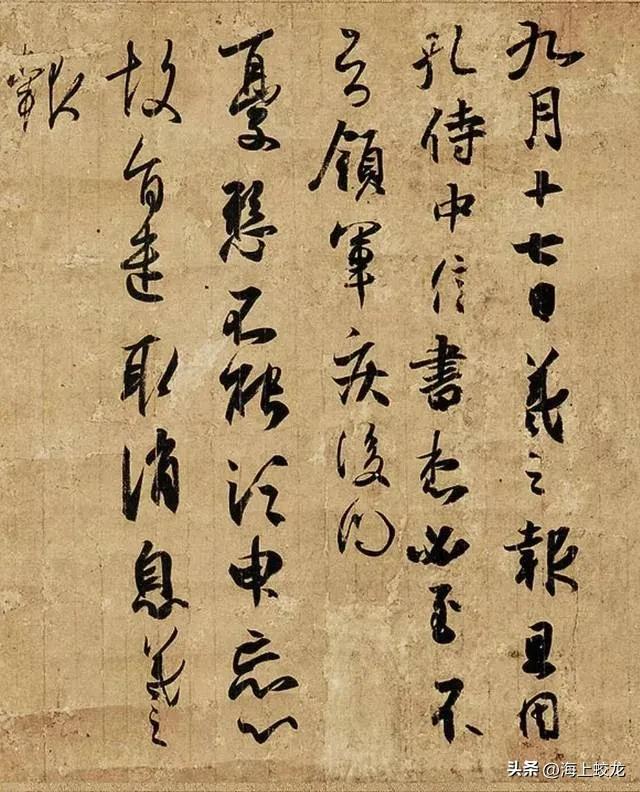 九月十七日羲之報且因
孔侍中信書想必至不
知領軍疾後問
憂懸不能須臾忘心
故旨遣取消息羲之
報
头条 @海上蛟龙